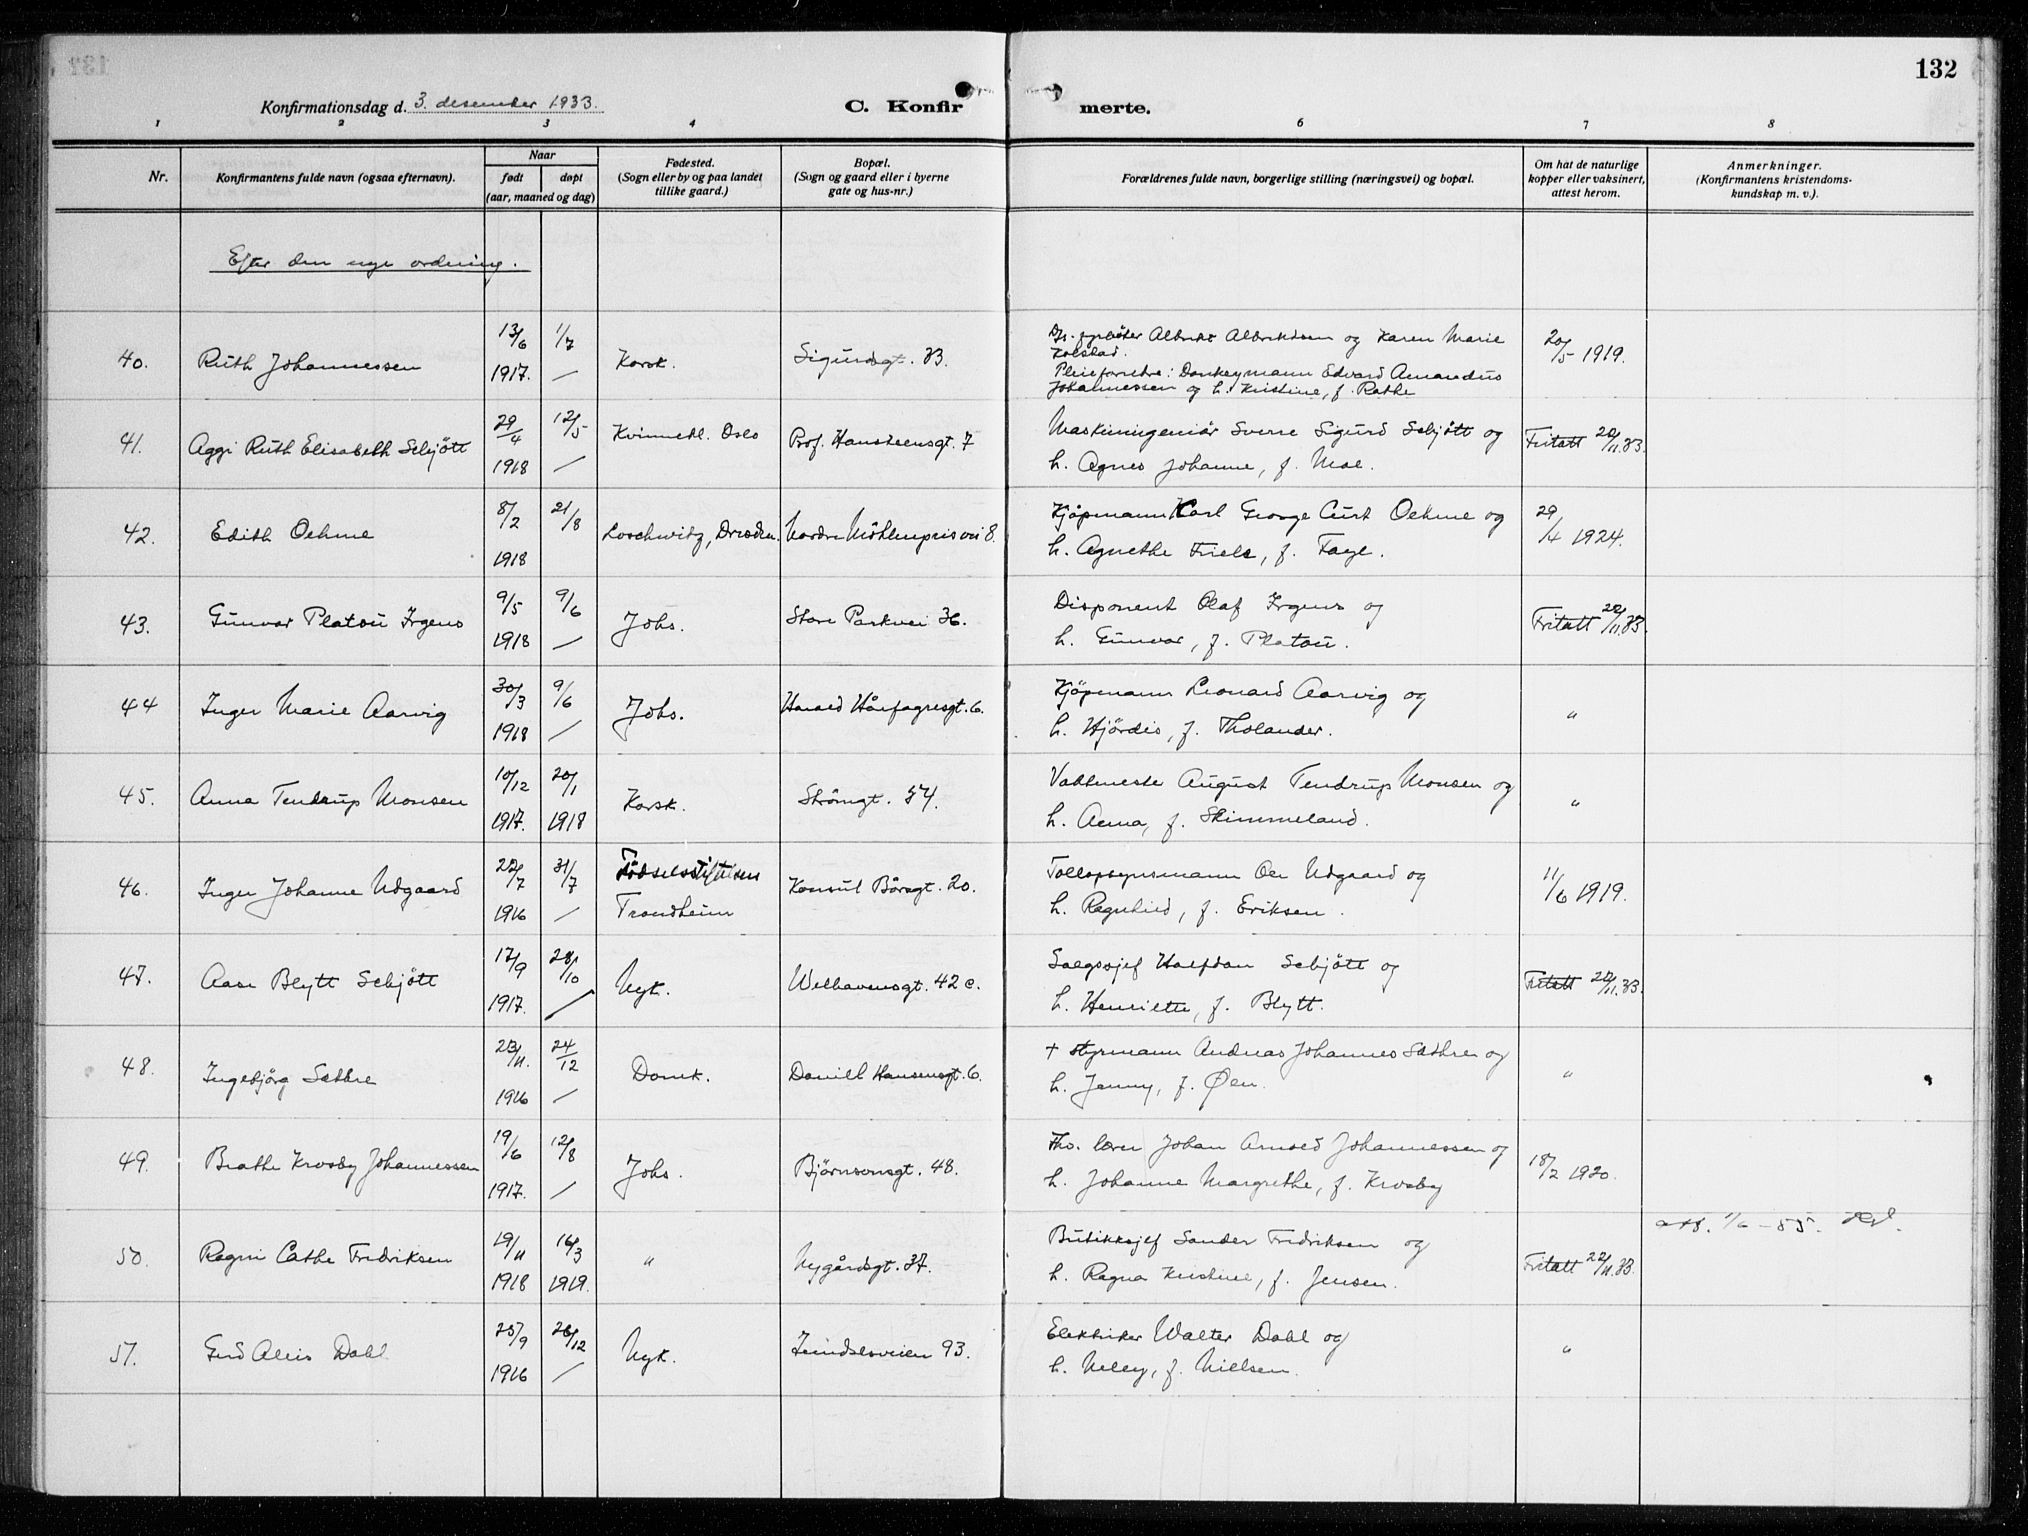 132
Konfirmationsdag d. 3. desember 1933.
C. Konfirmerte.
1 2 3 4 5 6 7 8
Nr.
Konfirmantens fulde navn (ogsaa efternavn).
Naar
født døpt
(aar, maaned og dag)
Fødested.
(Sogn eller by og paa landet
tillike gaard.)
Bopæl.
(Sogn og gaard eller i byerne
gate og hus-nr.)
Forældrenes fulde navn, borgerlige stilling (næringsvei) og bopæl.
Om hat de naturlige
kopper eller vaksinert,
attest herom.
Anmerkninger.
(Konfirmantens kristendoms-
kundskap m. v.).
Efter den nye ordning.
40. Ruth Johannessen 13/6 1917. 1/7 — Korsk. Sigurdsgt. 33.
fyrböter Albrikt Albriktsen og Karen Marie
Kolstad.
Pleieforeldre: Donkeymann Edvard Amandus
Johannessen og h. Kristine, f. Rathe
20/5 1919.
41. Aggi Ruth Elisabeth Schjött 29/4 1918 12/5 — Kvinnekl. Oslo Prof. Hansteensgt. 7
Maskiningeniör Sverre Sigurd Schjött og
h. Agnes Johanne, f. Moe.
Fritatt 22/11.33.
42. Edith Oehme 8/2 1918 21/8 Loschwitz, Dresden. Nordre Möhlenprisvei 8.
Kjöpmann Karl George Curt Oehme og
h. Agnethe Friele, f. Faye.
29/4 1924.
43. Gunvor Platou Irgens 9/5 1918 9/6 — Johs. Store Parkvei 36.
Disponent Olaf Irgens og
h. Gunvor, f. Platou.
Fritatt 22/11.33.
44 Inger Marie Aarvig 30/3 1918 9/6 — Johs. Harald Hårfagresgt. 6.
Kjöpmann Leonard Aarvig og
h. Hjördis, f. Tholander.
"
45. Anna Tendrup Monsen 10/12 1917. 20/1 1918 Korsk. Strömgt. 54.
Vaktmester August Tendrup Monsen og
h. Anna, f. Skimmeland.
"
46. Inger Johanne Udgaard 22/7 1916 31/7 — Födselsstiftelsen
Trondheim Konsul Börsgt. 20.
Tollopsynsmann Ole Udgaard og
h. Ragnhild, f. Eriksen.
11/6 1919.
47. Aase Blytt Schjött 17/9 1917. 28/10 — Nyk. Welhavensgt. 42 c.
Salgssjef Halfdan Schjött og
h. Henriette, f. Blytt.
Fritatt 22/11.33.
48. Ingebjörg Sæthre 23/11. 1916 24/12 — Domk. Daniel Hansensgt. 6.
+ styrmann Andreas Johannes Sæthre og
h. Jenny, f. Øen.
"
49. Beathe Krosby Johannessen 19/6 1917. 12/8 — Johs. Björnsonsgt. 48.
Johan Arnold Johannessen og
h. Johanne Margrethe, f. Krosby
18/2 1920.
50. Ragni Cathe Fredriksen 19/11 1918 16/3 1919. " Nygårdsgt. 37.
Butikksjef Sander Fredriksen og
h. Ragna Kristine, f. Jensen.
Fritatt 22/11.33.
att. 1/6 - 55.
51. Gerd Alvis Dahl 25/9 1916 26/12 — Nyk. 93.
Elektriker Walter Dahl og
h. Nelly, f. Nielsen.
"